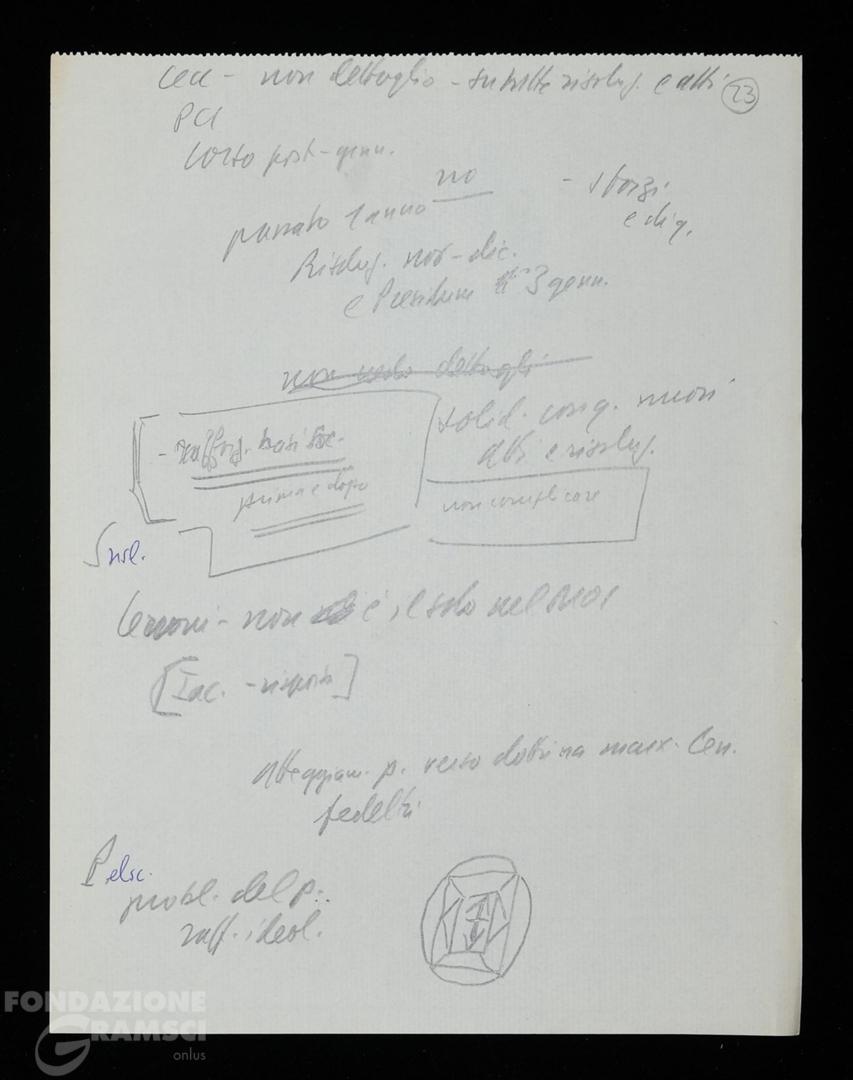 Cecl - non dettaglio - su tutte risoluz. e atti
23
PCI
corso post-genn.
no
passato 1 anno
- sforzi
e dig.
Risoluz. nov-dic.
e Presidium 3 genn.
non vedo dettagli
- rafforz. basi soc.
prima e dopo
solid. con q. nuovi
atti e risoluz.
non complicare
Susl.
- non è il solo nel MOI
[Iac. - risposta]
Atteggiam. p. verso dottrina marx. len.
fedeltà
Pelsc.
probl. del p.:
raff. ideol.
FONDAZIONE
GRAMSCI
onlus